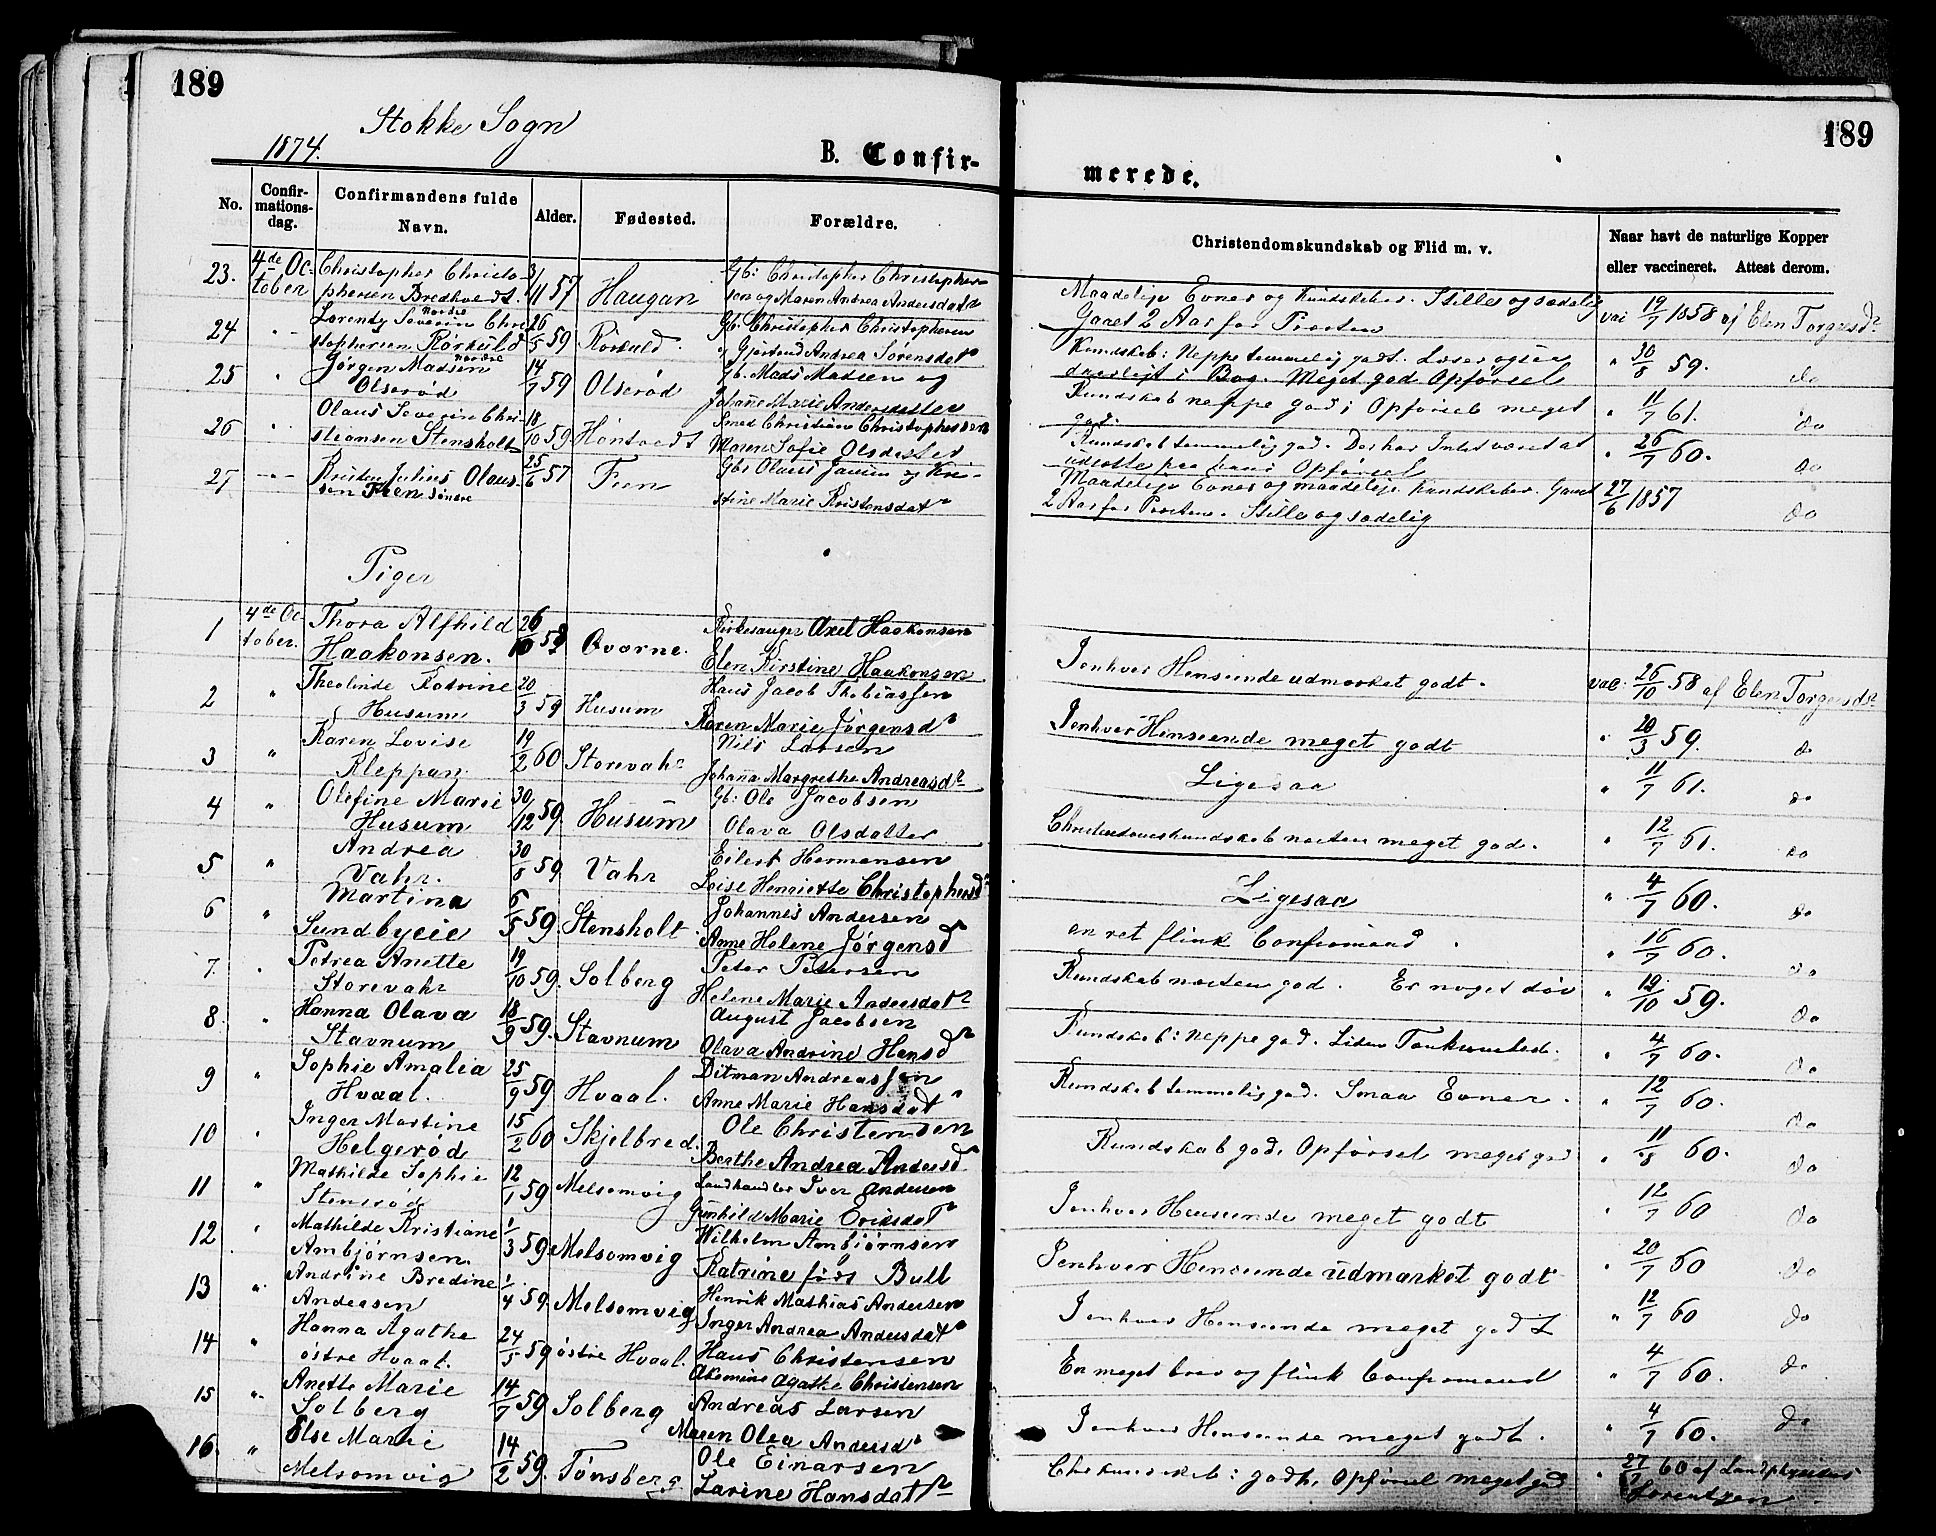 189
Stokke Sogn
1874.
B. Confir-
No.
Confir-
mations-
dag.
Confirmandens fulde
Navn.
Alder.
Fødested.
Forældre.
23. 4de Oc- Christopher Christo- 3/11 57 Haugan Gb: Christopher Christopher-
tober phersen Bredhvedt. sen og Maren Andrea Andersdatr
24 " Lorentz Severin Chri- 26/5 59 Rørkuld Gb. Christopher Christophersen
stophersen Rørkuld nordre og Gjertrud Andrea Sørensdatr
25 " Jørgen Madsen 14/7 59 Olserød Gb. Mads Madsen og
Olserød nordre Johanne Marie Andersdatter
26 " Olaus Severin Chri- 18/10 59 Hontvedt Smed Christian Christophersen
stiansen Stensholt Maren Sofie Olsdatter
27 " Julius Olaus- 25/6 57 Feen Gbr Olaus Jansen og Kri-
sen Feen søndre stine Marie Kristensdatr
Piger
1 4de Oc- Thora Alfhild 26/10 58 Qvarne. Kirkesanger Axel Haakonsen
tober. Haakonsen. Elen Kirstine Haakonsen
2 " Theolinde Katrine 20/3 59 Husum Hans Jacob Thobiassen
Husum Karen Marie Jørgensdr
3 " Karen Lovise 19/2 60 Storevahr Nils Larsen
Kleppan. Johanna Margrethe Andreasdr
4 " Olefine Marie 30/12 59. Husum Gb: Ole Jacobsen
Husum Olava Olsdatter
5 " Andrea 30/8 59 Vahr Eilert Hermansen
Vahr. Loise Henriette Christophersdr
6 " Martina 6/5 59 Stensholt Johannes Andersen
Sundbyeie Anne Helene Jørgensdr
7 " Petrea Anette 19/10 59. Solberg Peter Petersen
Storevahr Helene Marie Andersdatr
8 " Hanna Olava 18/9 59. Stavnum August Jacobsen
Stavnum Olava Andrine Hansdr
9 " Sophie Amalia 25/9 59 Hvaal. Ditman Andreassen
Hvaal. Anne Marie Hansdatr
10 " Inger Martine 15/2 60 Skjelbred. Ole Christensen
Helgerød Berthe Andrea Andersdr
11 " Mathilde Sophie 12/1 59 Melsomvig Landhandler Iver Andersen
Stensrød Gunhild Marie Eriksdatr
12 " Mathilde Kristiane 1/3 59 Melsomvig Wilhelm Ambjørnsen
Ambjørnsen. Katrine født Bull
13 " Andrine Bredine 1/4 59. Melsomvig Henrik Mathias Andersen
Andersen Inger Andrea Andersdatr
14 " Hanna Agathe 24/5 59 østre Hvaal. Hans Christensen
østre Hvaal. Agathe Christensen
15 " Anette Marie 14/7 59 Solberg Andreas Larsen
Solberg Maren Olea Andersdr
16. " Else Marie 14/2 59. Tønsberg Ole Einarsen
Melsomvig Larine Hansdatr
189
merede.
Christendomskundskab og Flid m. v.
Naar havt de naturlige Kopper
eller vaccineret. Attest derom.
Maadelige Evner og Kundskaber. Stille og sædelig vac 19/7 1858 af Elen Torgersdr
Gaaet 2 Aar for Præsten
Kundskab: Neppe temmelig godt. Læser ogsaa " 30/8 59. do
daarligt i Bog. Meget god Opførsel
Kundskab neppe god; Opførsel meget " 11/7 61. do
god.
Kundskab temmelig god. Der har Intet været at " 26/7 60. do
udsætte paa hans Opførsel
Maadelige Evner og maadelige Kundskaber. Gaaet 27/6 1857 do
2 Aar for Præsten. Stille og sædelig
I enhver Henseende udmærket godt. vac. 26/10 58 af Elen Torgersdr
I enhver Henseende meget godt " 20/3 59. do
Ligesaa " 11/7 61. do
Christendomskundskab næsten meget god. " 12/7 61. do
Ligesaa " 4/7 60. do
en ret flink Confirmand. " 16/7 60. do
Kundskab næsten god. Er noget døv " 19/10 59. do
Kundskab: neppe god. Liden " 4/7 60. do
Kundskab temmelig god. Smaa Evner. " 12/7 60. do
Kundskab god, Opførsel meget god " 11/8 60. do
I enhver Henseende meget godt " 12/7 60 do
I enhver Henseende udmærket godt " 20/7 60 do
I enhver Henseende meget godt " 12/7 60 do
En meget brav og flink Confirmand " 4/7 60. do
I enhver Henseende meget godt. " 4/7 60. do
Chr.kundskab: godt. Opførsel meget god " 27/7 60 af Landphysikus
Lorentzen